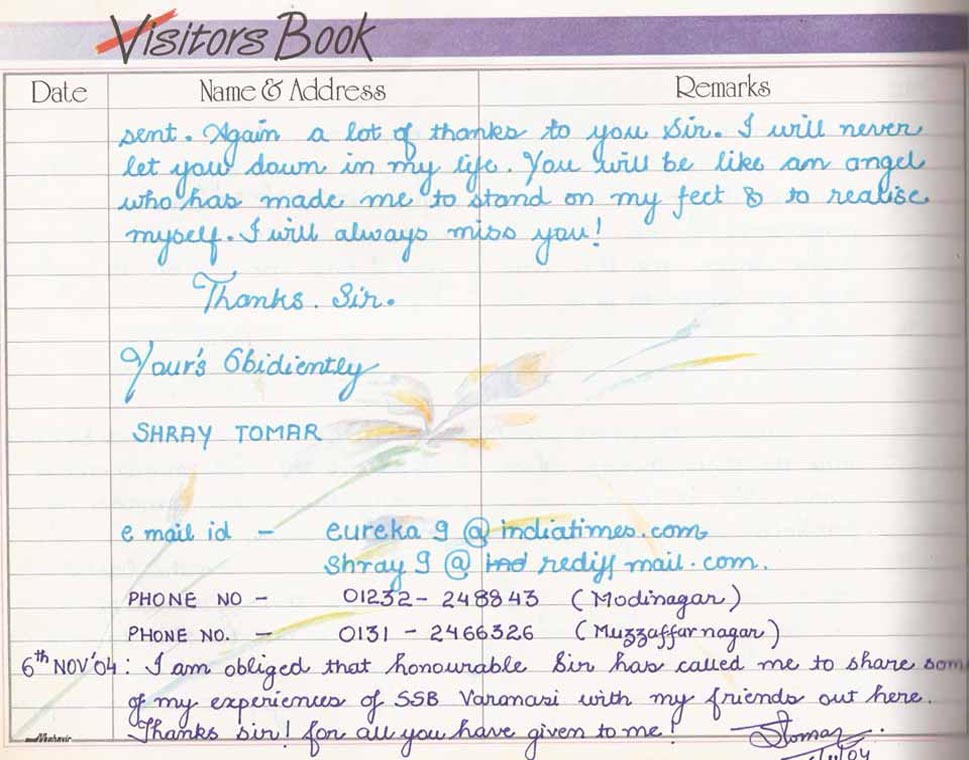 Visitors Book
Date Name & Address Remarks
sent. Again a lot of thanks to you Sir. I will never
let you down in my life. You will be like an angel
who has made me to stand on my feet & to realise
myself. I will always miss you!
Thanks. Sir.
Your's Obidiently
SHRAY TOMAR
e mail id - eureka 9 @ indiatimes.com
Shray 9 @ ind rediff mail.com.
PHONE NO - 01232 - 248843 (Modinagar)
PHONE NO. - 0131 - 2466326 (Muzzaffarnagar)
6th NOV'04: I am obliged that honourable Sir has called me to share som
of my experiences of SSB Varanasi with my friends out here.
Thanks Sir! for all you have given to me! STomar
/11/04